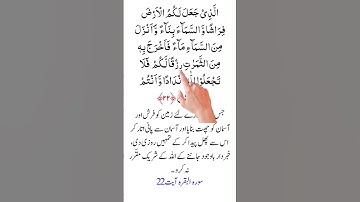 الَّذِیْ جَعَلَ لَكُمُ الْاَرْضَ
فِرَاشًا وَّالسَّمَآءَ بِنَآءً ۪ وَّاَنْزَلَ
مِنَ السَّمَآءِ مَآءً فَاَخْرَجَ بِهٖ
مِنَ الثَّمَرٰتِ رِزْقًا لَّكُمْ ۚ فَلَا
تَجْعَلُوْا نْدَادًا وَّاَنْتُمْ
﴿۲۲﴾
جس رے لئے زمین کو فرش اور
آسمان کو چھت بنایا اور آسمان سے پانی اتار کر
اس سے پھل پیدا کر کے تمہیں روزی دی،
خبردار باوجود جاننے کے اللہ کے شریک مقرر
نہ کرو۔
سورہ البقرہ آیت 22